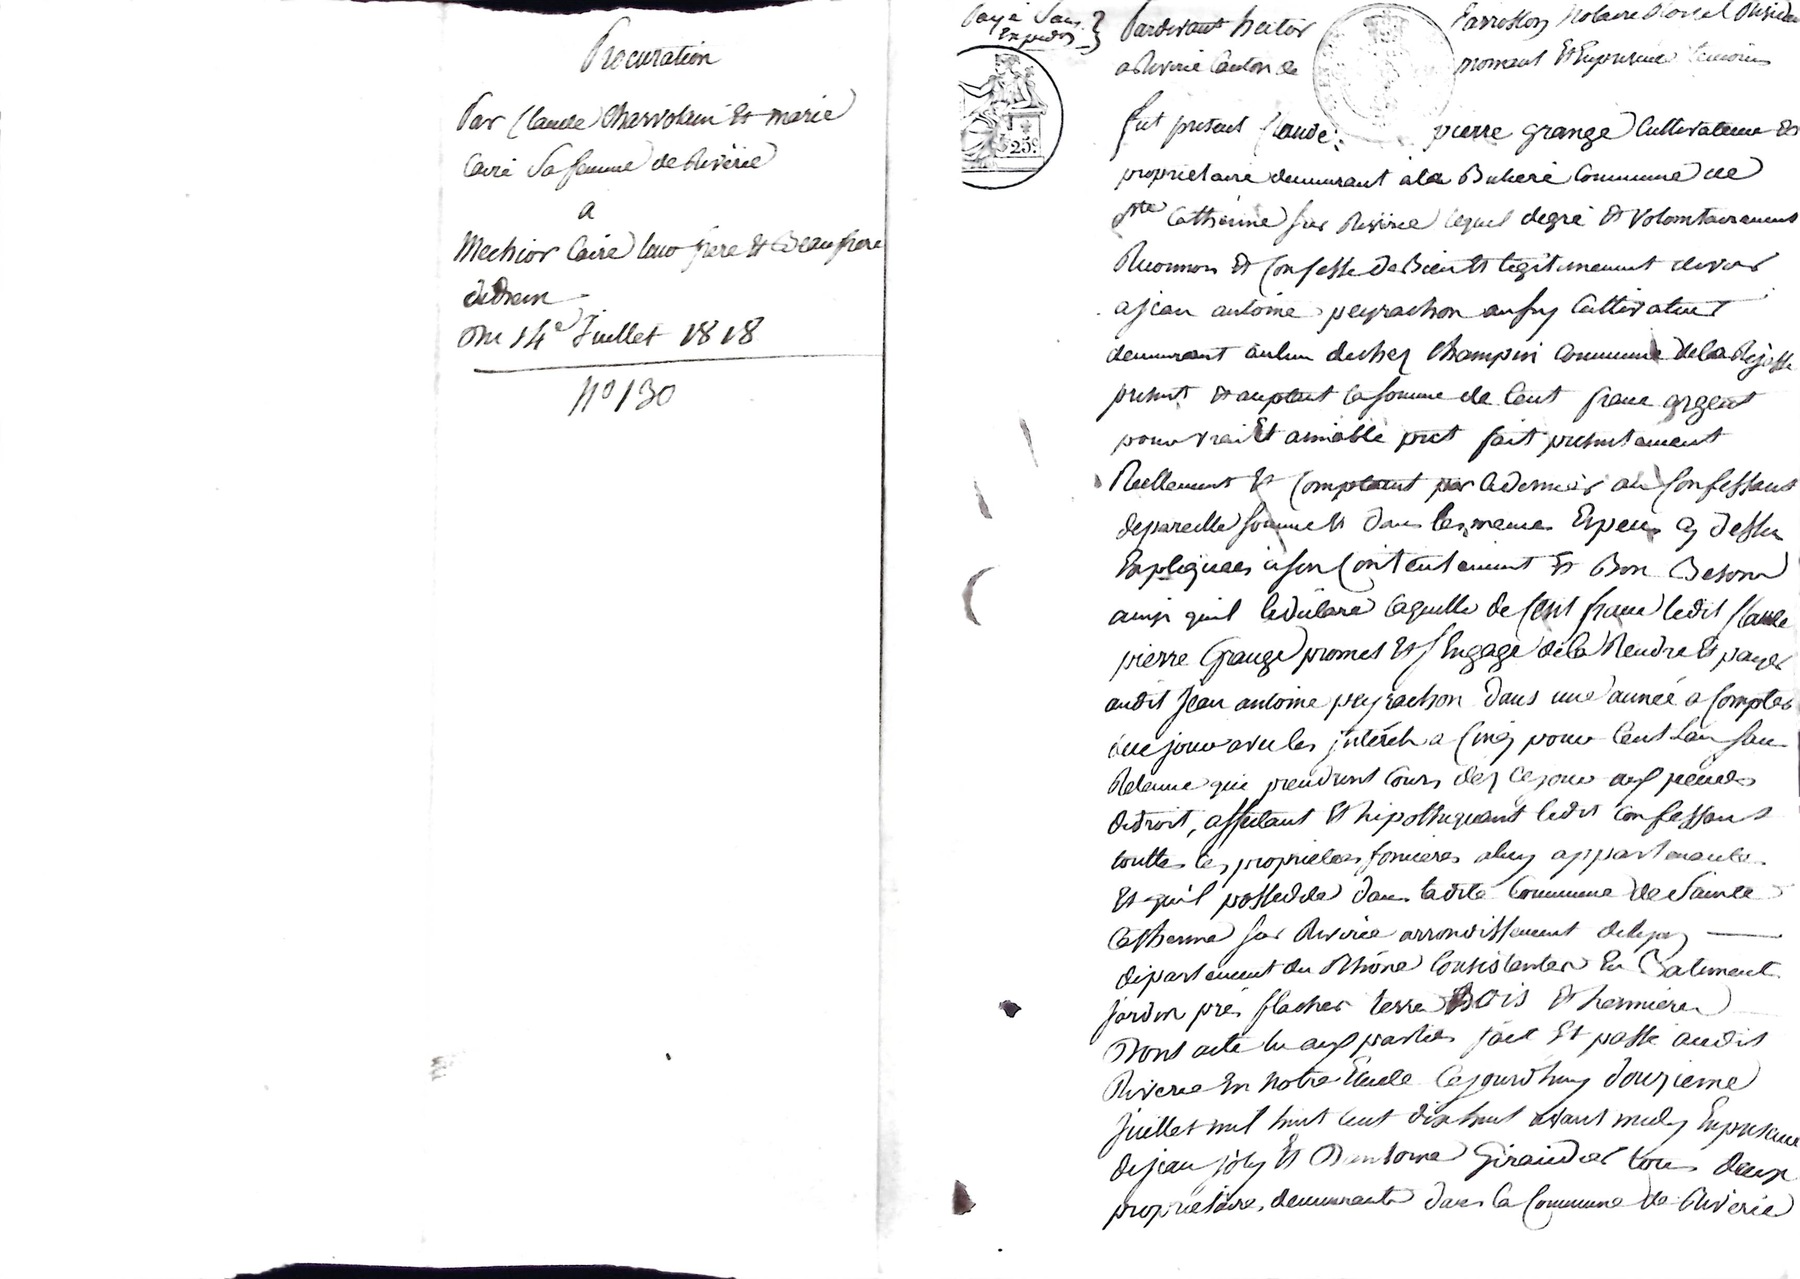 Procuration
Par Claude Charvolin Et marie
Caire Sa femme de Riverie
a
Mechior Caire leur frere Et Beaufrere
Du 14e Juillet 1818
No 130
Payé Sans
Expedon
Pardevant hector Parrotton Notaire Royal
a Riverie Canton de mornant Et En presence temoins
fut present Claude pierre grange Cultivateur Et
proprietaire demeurant a la Commune de
Ste Catherine Sur Riverie lequel degré Et volontairement
Reconnoi Et Confesse de Bien Et legitimement devoir
a jean antoine peyrachon Cultivateur
demeurant au lieu de chez Champin Commune de la
present Et acceptant la somme de Cent franc argent
pour vrai Et amiable pret fait presentement
Reellement Et Comptant par le dernier au Confessant
de pareille somme Et dans les meme Espece Cy dessu
Expliquées a son Contentement Et Bon Besoin
ainsi quil le déclare laquelle de Cent franc ledit Claude
pierre Grange promet Et S'Engage de la Rendre Et payer
audit Jean antoine peyrachon Dans une année a Compter
de ce jour avec les intérêt a Cinq pour Cent L'an San
Retenue qui prendront Cours dez ce jour aux peines
de droit, affectant Et hipothequant ledit Confessant
toutte les proprietees foncieres a luy appartenante
Et qu'il possedde dans ladite Commune de Sainte
Catherine Sur Riverie arrondissement de lyon
département du Rhône Consistantes En Batiment
Jardin prés flacher terre Bois Et hermieres
Dont acte lu aux parties fait Et passé audit
Riverie En notre Etude Cejourdhuy douzieme
Juillet mil huit cent dix huit avant midy En presence
de jean joly Et D'antoine Giraudier tous deux
proprietaire, demeurants dans la Commune de Riverie